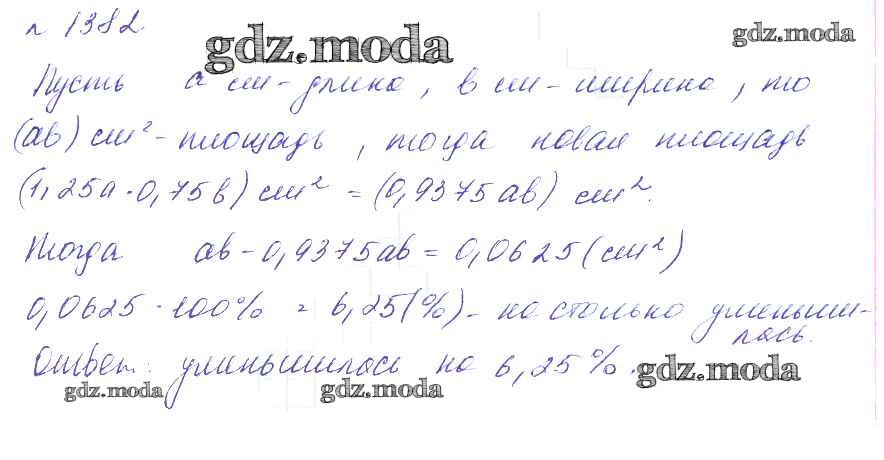 n 1382.
gdz.moda
gdz.moda
Пусть a см - длина, в см - ширина, то
(ab) см² - площадь, тогда новая площадь
(1,25a · 0,75b) см² = (0,9375ab) см².
Тогда ab - 0,9375ab = 0,0625 (см²)
0,0625 · 100% = 6,25(%) - на столько уменьши-
лась.
Ответ: уменьшилась на 6,25%.
gdz.moda
gdz.moda
gdz.moda